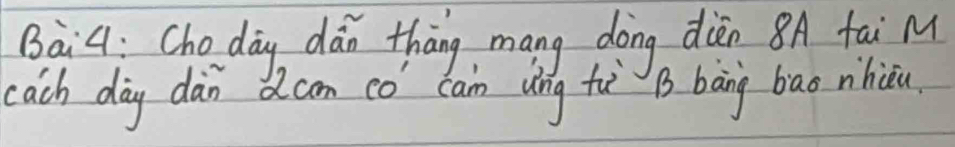 Bài 4: Cho dây dẫn thẳng mang dòng điện 8A tại M
cách dây dẫn 2cm có cảm ứng từ B bằng bao nhiêu.